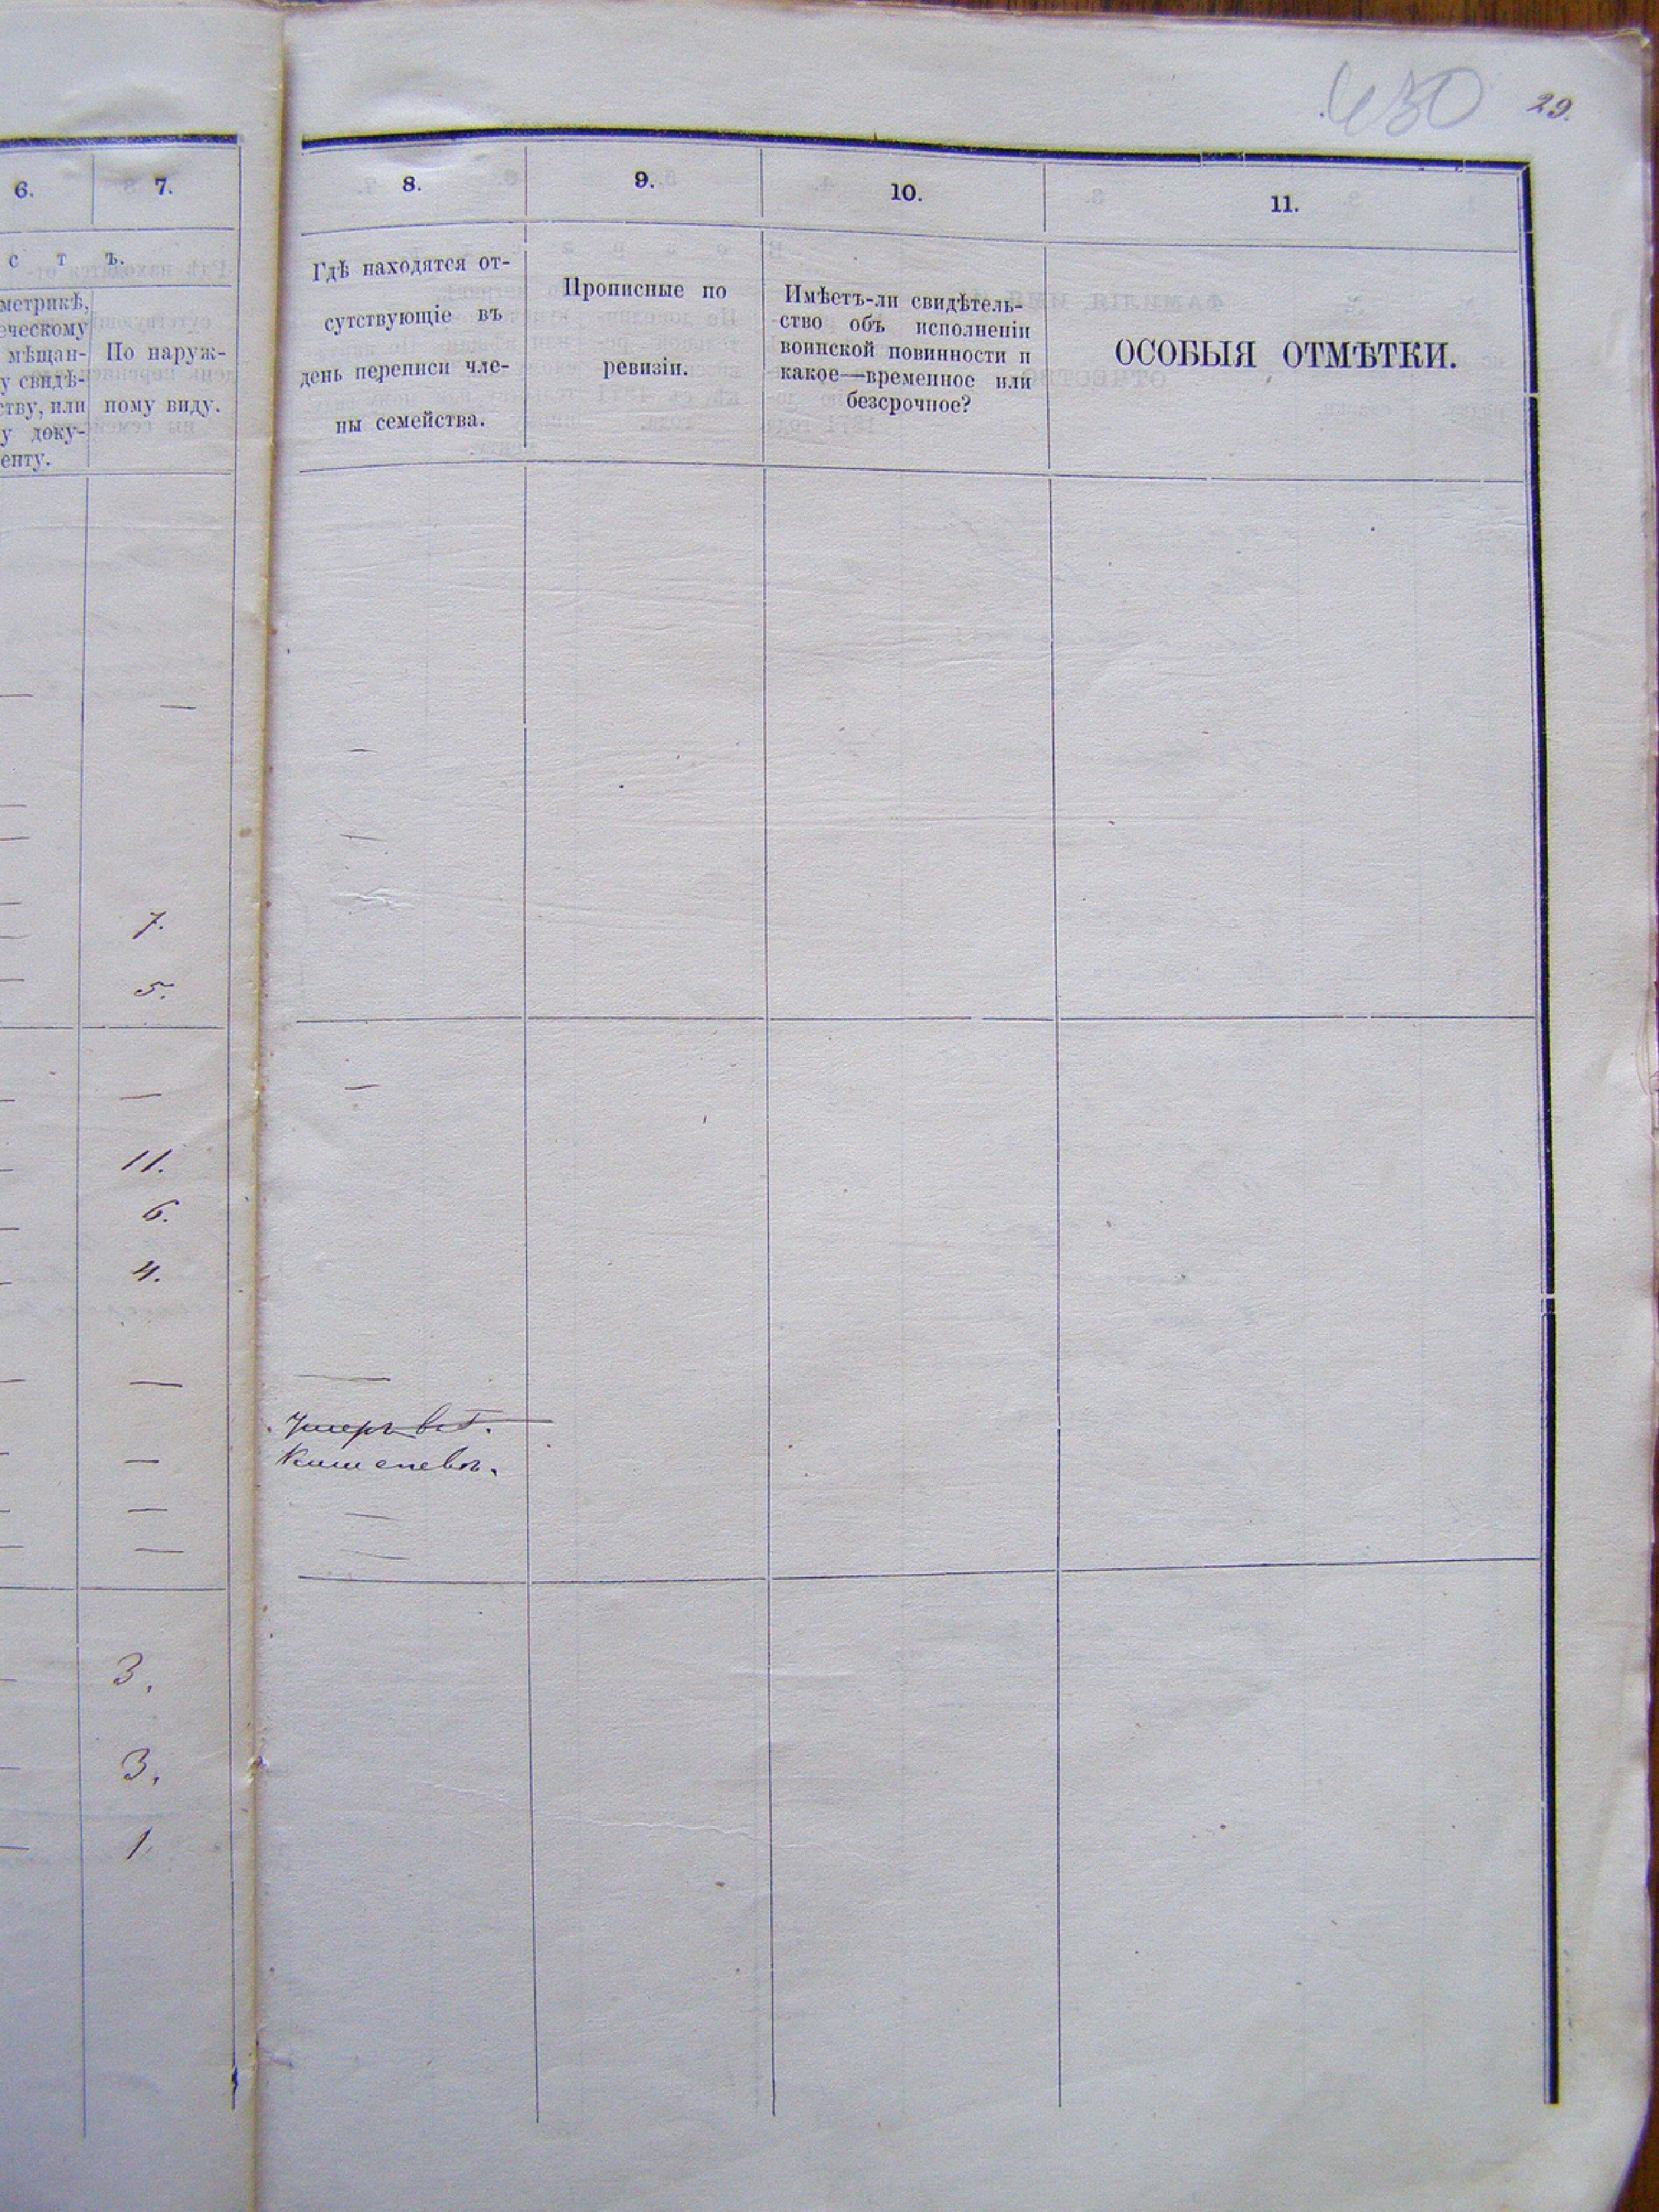 450 29.
6. 7.
с т ъ.
метрикѣ,
еческому
мѣщан-
у свидѣ-
ству, или
у доку-
енту.
По наруж-
ному виду.
7.
5.
—
11.
6.
4.
—
—
—
—
3.
3.
1
8. 9. 10. 11.
Гдѣ находятся от-
сутствующіе въ
день переписи чле-
ны семейства.
Прописные по
ревизіи.
Имѣетъ-ли свидѣтель-
ство объ исполненіи
воинской повинности и
какое—временное или
безсрочное?
ОСОБЫЯ ОТМѢТКИ.
—
—
—
—
Умеръ
Кишеневъ.
—
—